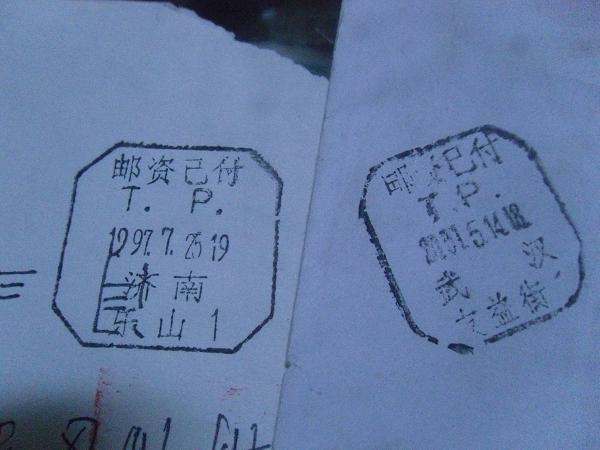 邮资已付
T. P.
1997.7.25 19
济南
乐山 1
邮资已付
T. P.
2001.5.14.18
武汉
文益街